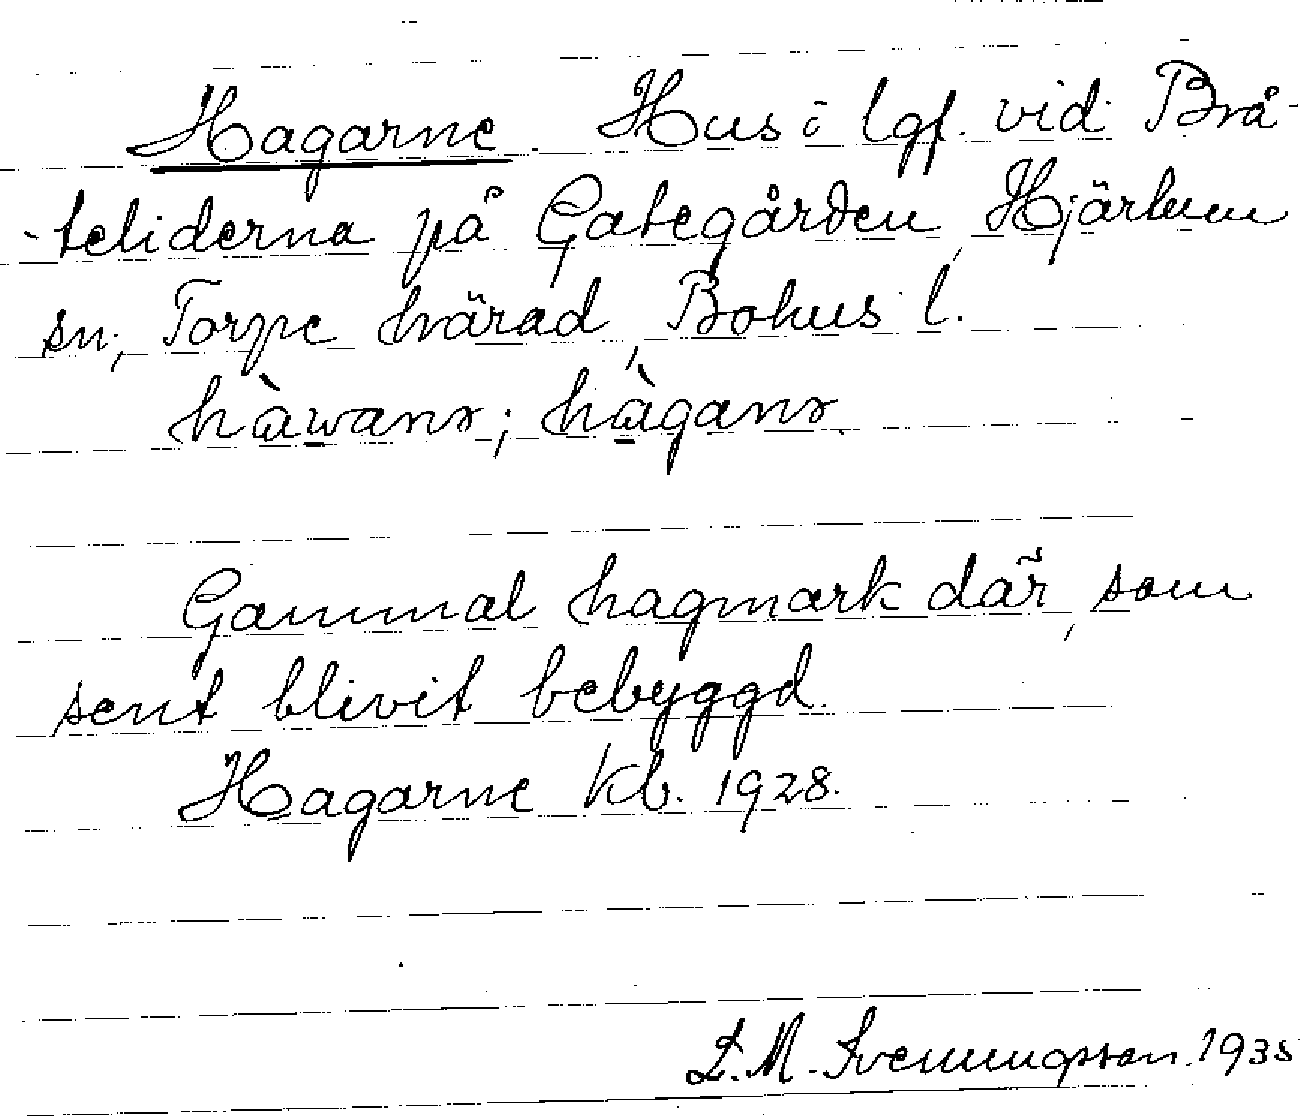 Hagarne. Hus i lgf. vid Brå-
-teliderna på Gategården, Hjärtum
sn; Torpe härad, Bohus l.
hàwanꝛ; hàganꝛ.
Gammal hagmark där, som
sent blivit bebyggd.
Hagarne Kb. 1928.
L. M. Svenungsson. 1935